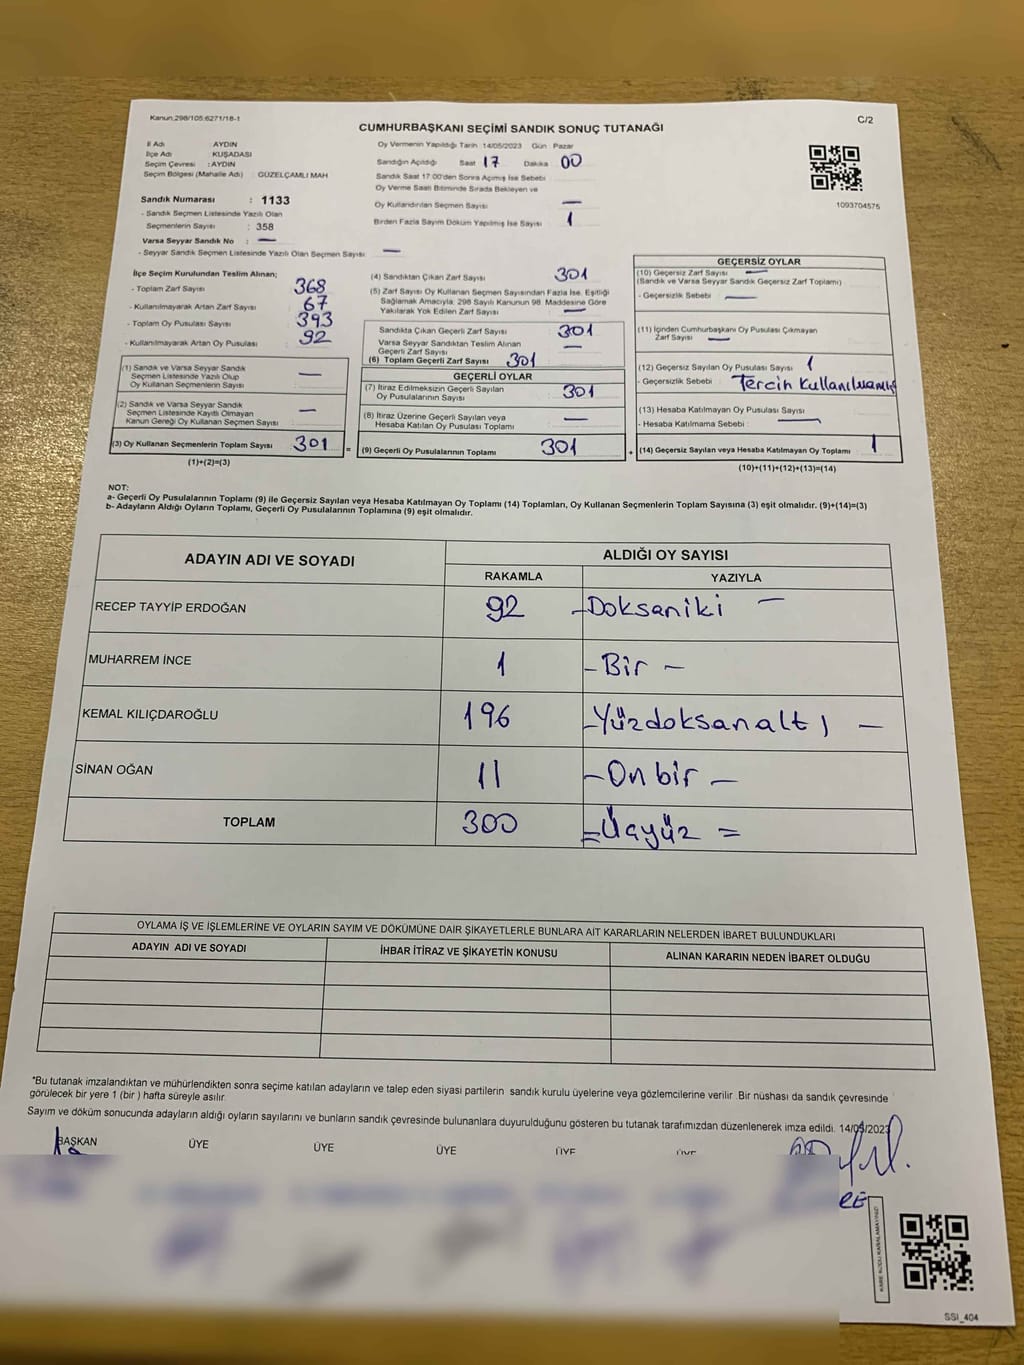 Kanun:298/105;6271/18-1
C/2
CUMHURBAŞKANI SEÇİMİ SANDIK SONUÇ TUTANAĞI
İl Adı AYDIN
İlçe Adı KUŞADASI
Seçim Çevresi : AYDIN
Seçim Bölgesi (Mahalle Adı) GÜZELÇAMLI MAH
Sandık Numarası : 1133
- Sandık Seçmen Listesinde Yazılı Olan
Seçmenlerin Sayısı : 358
Varsa Seyyar Sandık No : —
- Seyyar Sandık Seçmen Listesinde Yazılı Olan Seçmen Sayısı —
Oy Vermenin Yapıldığı Tarih 14/05/2023 Gün Pazar
Sandığın Açıldığı Saat 17 Dakika 00
Sandık Saat 17:00'den Sonra Açılmış İse Sebebi
Oy Verme Saati Bitiminde Sırada Bekleyen ve
Oy Kullandırılan Seçmen Sayısı —
Birden Fazla Sayım Döküm Yapılmış İse Sayısı 1
1093704575
İlçe Seçim Kurulundan Teslim Alınan;
- Toplam Zarf Sayısı 368
- Kullanılmayarak Artan Zarf Sayısı 67
- Toplam Oy Pusulası Sayısı 393
- Kullanılmayarak Artan Oy Pusulası 92
(1) Sandık ve Varsa Seyyar Sandık
Seçmen Listesinde Yazılı Olup
Oy Kullanan Seçmenlerin Sayısı —
(2) Sandık ve Varsa Seyyar Sandık
Seçmen Listesinde Kayıtlı Olmayan
Kanun Gereği Oy Kullanan Seçmen Sayısı —
(3) Oy Kullanan Seçmenlerin Toplam Sayısı 301 =
(1)+(2)=(3)
(4) Sandıktan Çıkan Zarf Sayısı 301
(5) Zarf Sayısı Oy Kullanan Seçmen Sayısından Fazla İse, Eşitliği
Sağlamak Amacıyla, 298 Sayılı Kanunun 98. Maddesine Göre
Yakılarak Yok Edilen Zarf Sayısı —
Sandıkta Çıkan Geçerli Zarf Sayısı 301
Varsa Seyyar Sandıktan Teslim Alınan
Geçerli Zarf Sayısı —
(6) Toplam Geçerli Zarf Sayısı 301
GEÇERLİ OYLAR
(7) İtiraz Edilmeksizin Geçerli Sayılan
Oy Pusulalarının Sayısı 301
(8) İtiraz Üzerine Geçerli Sayılan veya
Hesaba Katılan Oy Pusulası Toplamı —
(9) Geçerli Oy Pusulalarının Toplamı 301 +
GEÇERSİZ OYLAR
(10) Geçersiz Zarf Sayısı —
(Sandık ve Varsa Seyyar Sandık Geçersiz Zarf Toplamı)
- Geçersizlik Sebebi : —
(11) İçinden Cumhurbaşkanı Oy Pusulası Çıkmayan
Zarf Sayısı —
(12) Geçersiz Sayılan Oy Pusulası Sayısı 1
- Geçersizlik Sebebi : Tercih Kullanılmamış
(13) Hesaba Katılmayan Oy Pusulası Sayısı —
- Hesaba Katılmama Sebebi :
(14) Geçersiz Sayılan veya Hesaba Katılmayan Oy Toplamı 1
(10)+(11)+(12)+(13)=(14)
NOT:
a- Geçerli Oy Pusulalarının Toplamı (9) ile Geçersiz Sayılan veya Hesaba Katılmayan Oy Toplamı (14) Toplamları, Oy Kullanan Seçmenlerin Toplam Sayısına (3) eşit olmalıdır. (9)+(14)=(3)
b- Adayların Aldığı Oyların Toplamı, Geçerli Oy Pusulalarının Toplamına (9) eşit olmalıdır.
ADAYIN ADI VE SOYADI ALDIĞI OY SAYISI
RAKAMLA YAZIYLA
RECEP TAYYİP ERDOĞAN 92 -Doksaniki —
MUHARREM İNCE 1 -Bir —
KEMAL KILIÇDAROĞLU 196 -Yüzdoksanaltı —
SİNAN OĞAN 11 -Onbir —
TOPLAM 300 =Üçyüz =
OYLAMA İŞ VE İŞLEMLERİNE VE OYLARIN SAYIM VE DÖKÜMÜNE DAİR ŞİKAYETLERLE BUNLARA AİT KARARLARIN NELERDEN İBARET BULUNDUKLARI
ADAYIN ADI VE SOYADI İHBAR İTİRAZ VE ŞİKAYETİN KONUSU ALINAN KARARIN NEDEN İBARET OLDUĞU
*Bu tutanak imzalandıktan ve mühürlendikten sonra seçime katılan adayların ve talep eden siyasi partilerin sandık kurulu üyelerine veya gözlemcilerine verilir. Bir nüshası da sandık çevresinde
görülecek bir yere 1 (bir ) hafta süreyle asılır.
Sayım ve döküm sonucunda adayların aldığı oyların sayılarını ve bunların sandık çevresinde bulunanlara duyurulduğunu gösteren bu tutanak tarafımızdan düzenlenerek imza edildi. 14/05/2023
BAŞKAN ÜYE ÜYE ÜYE ÜYE ÜYE
KARE KODU KARALAMAYINIZ!
SSI_404